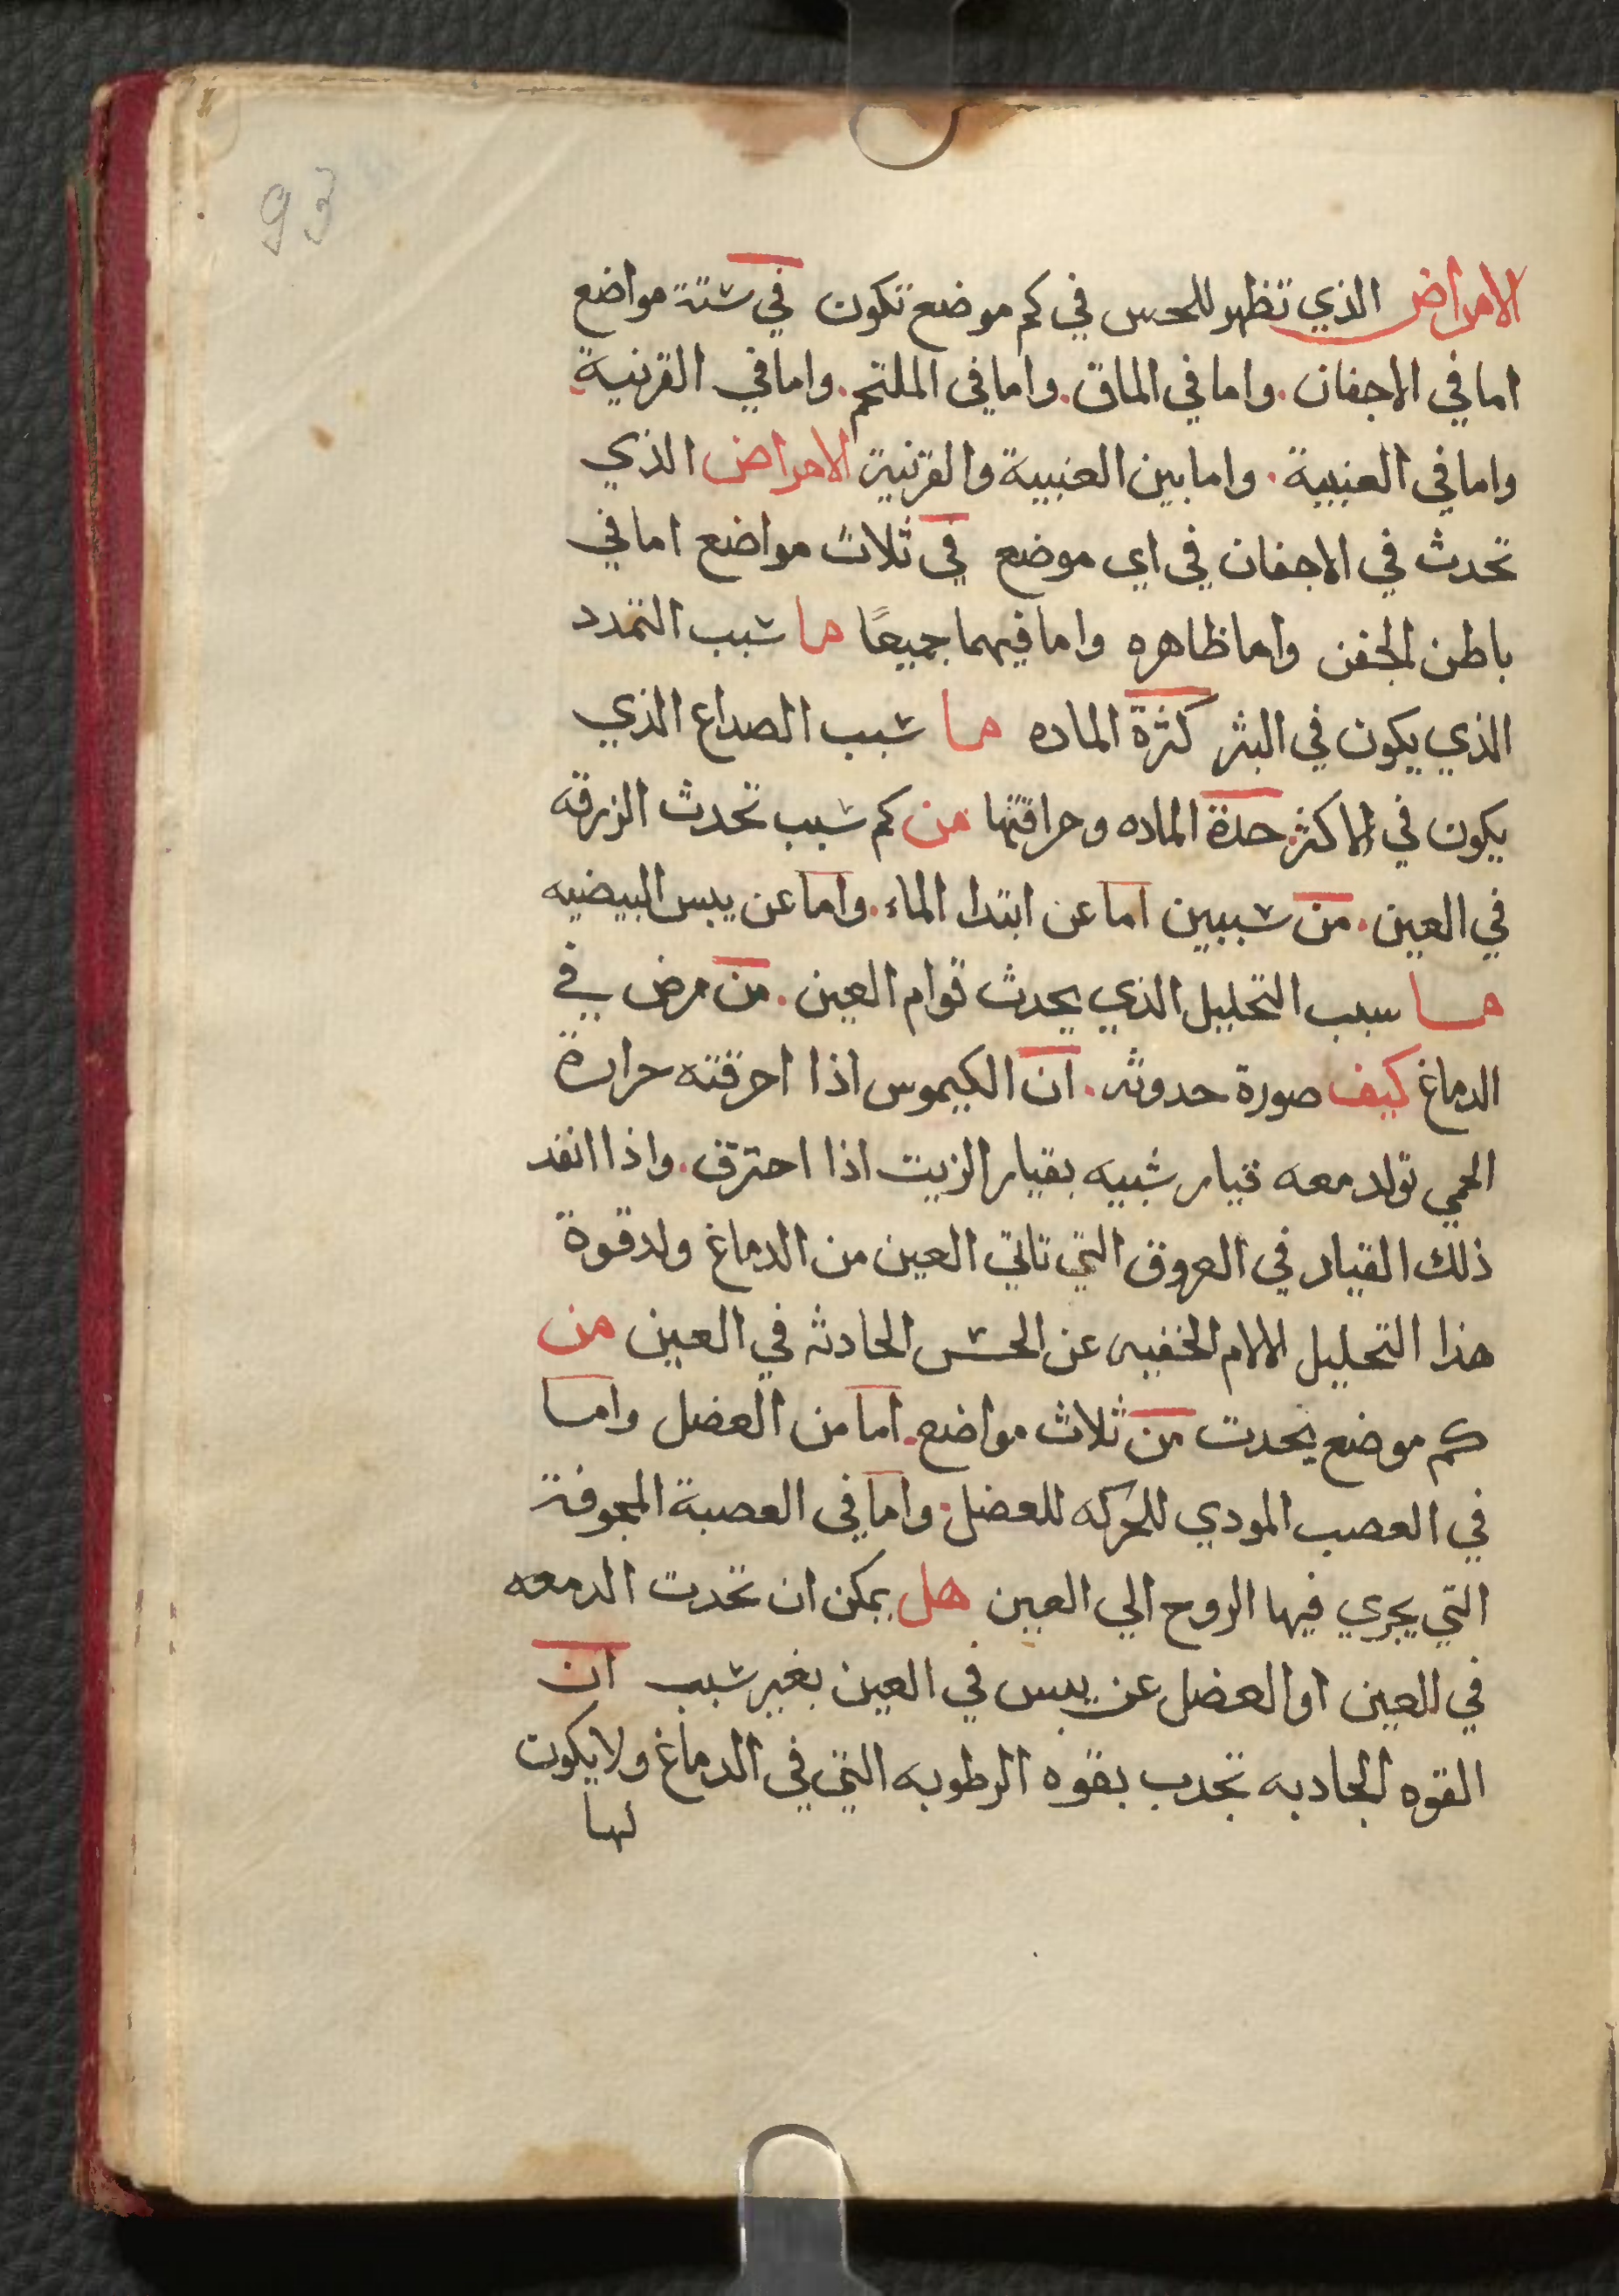 93
الامراض الذي تظهر للحس في كم موضع تكون في ستة مواضع
اما في الاجفان. واما في الماق. واما في الملتحم. واما في القرنية.
واما في العنبية. واما بين العنبية والقرنية الامراض الذي
تحدث في الاجفان في اي موضع في ثلاث مواضع اما في
باطن الجفن واما ظاهره واما فيهما جميعًا ما سبب التمدد
الذي يكون في البثر كثرة الماده ما سبب الصداع الذي
يكون في الاكثر. حدة الماده وحرافتها من كم سبب تحدث الزرقه
في العين. من سببين اما عن ابتدا الماء. واما عن يبس البيضيه
ما سبب التحليل الذي يحدث قوام العين. من مرض في
الدماغ كيف صورة حدوثه. ان الكيموس اذا احرقته حرارة
الحمي تولد معه قيار شبيه بقيار الزيت اذا احترق. واذا انفد
ذلك القيار في العروق التي تاتي العين من الدماغ ولد قوة
هذا التحليل الالام الخفيه عن الحس الحادثه في العين من
كم موضع يحدت من ثلاث مواضع. اما من العضل واما
في العصب المودي للحركه للعضل. واما في العصبة المجوفة
التي يجري فيها الروح الي العين هل يمكن ان تحدت الدمعه
في العين او العضل عن يبس في العين بغير سبب ان
القوه الجادبه تجدب بقوه الرطوبه التي في الدماغ ولا يكون
لها